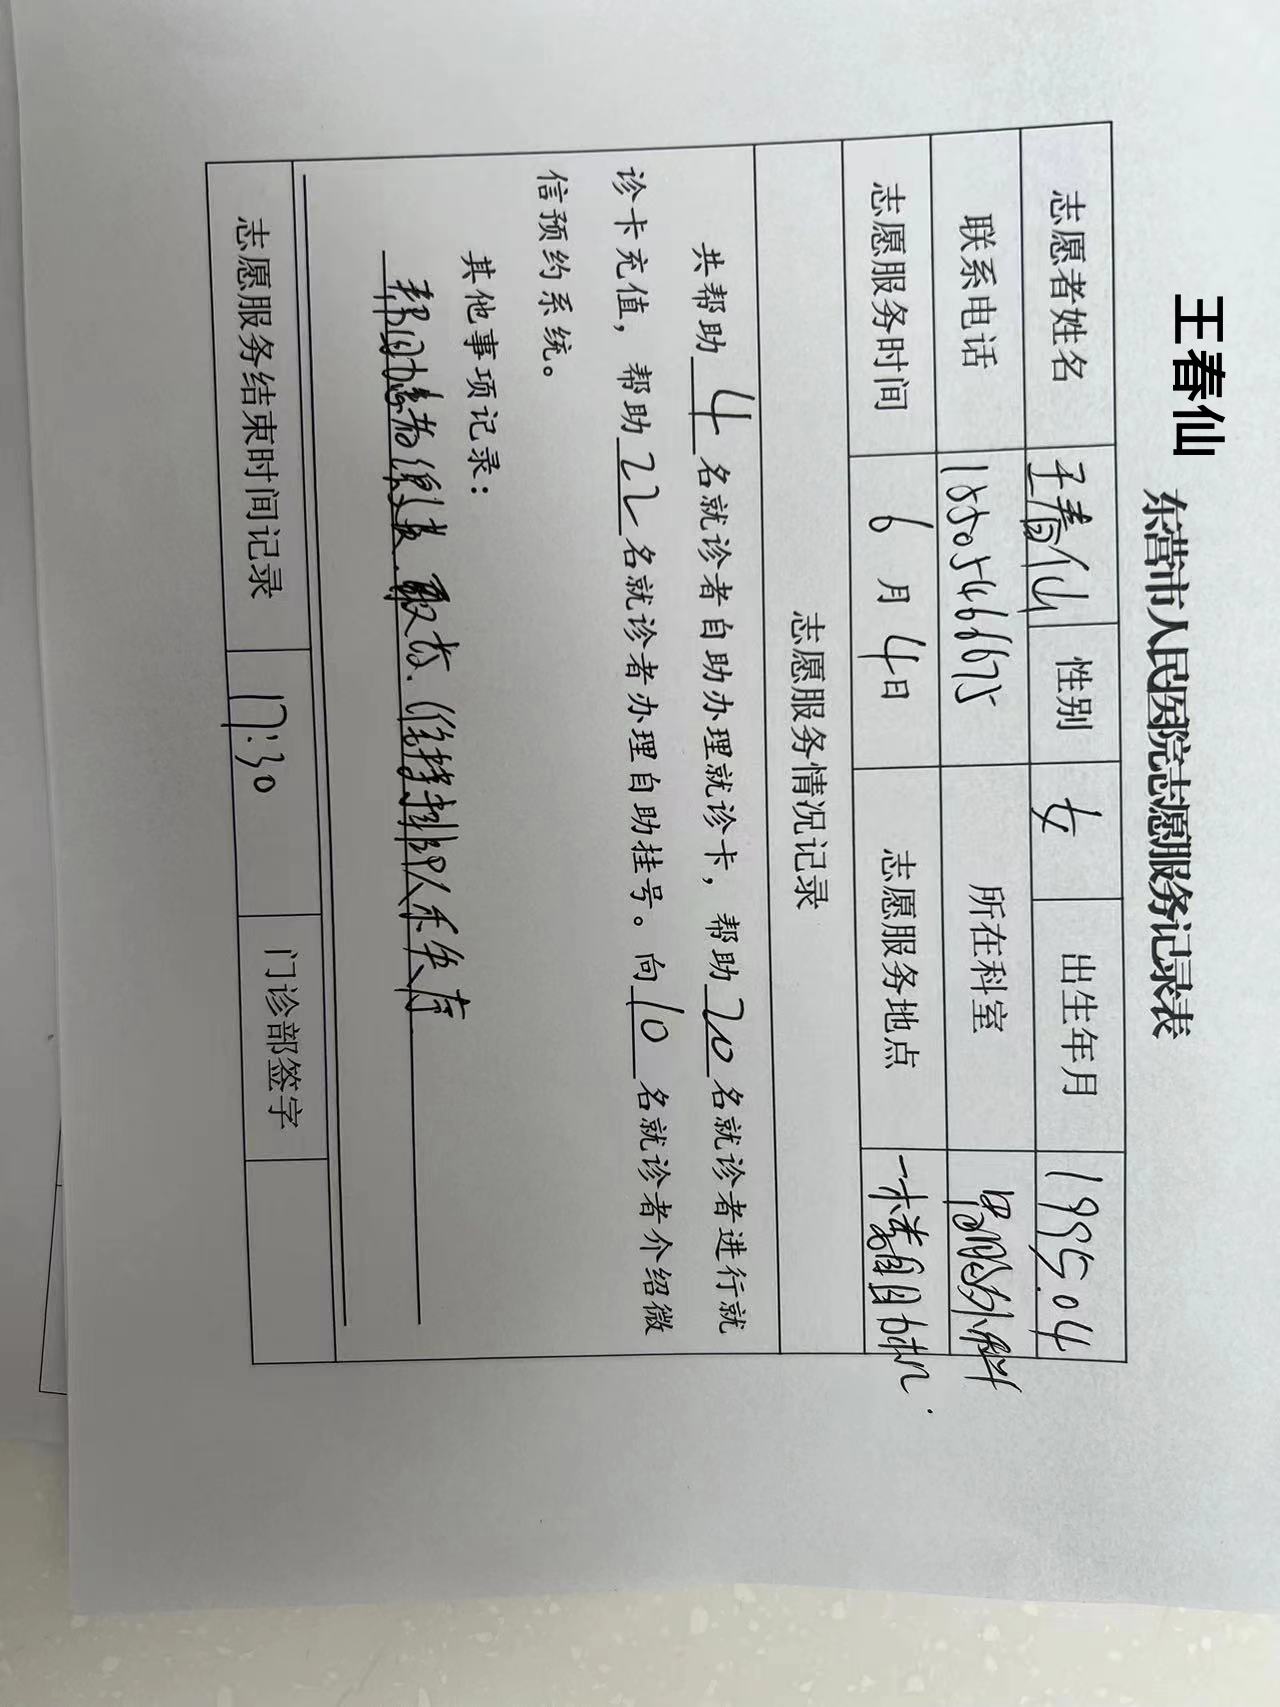 王春仙
东营市人民医院志愿服务记录表
志愿者姓名 王春仙 性别 女 出生年月 1995.04
联系电话 18505466675 所在科室 胃肠外科
志愿服务时间 6月4日 志愿服务地点 一楼自助机
志愿服务情况记录
共帮助4名就诊者自助办理就诊卡，帮助20名就诊者进行就
诊卡充值，帮助22名就诊者办理自助挂号。向10名就诊者介绍微
信预约系统。
其他事项记录：
帮助患者缴费、取药、维持排队秩序
志愿服务结束时间记录 17:30 门诊部签字